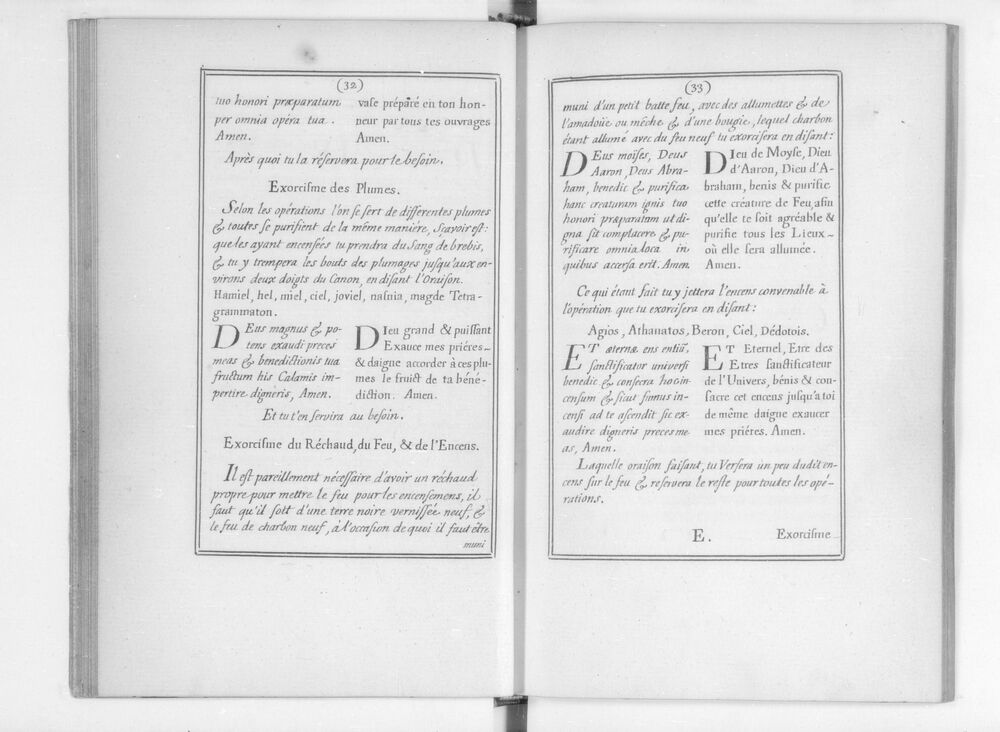 (32)
tuo honori præparatum
per omnia opéra tua.
Amen.
vase préparé en ton hon-
neur par tous tes ouvrages
Amen.
Après quoi tu la réservera pour le besoin.
Exorcisme des Plumes.
Selon les opérations l'on se sert de différentes plumes
& toutes se purifient de la même maniére, Sçavoir est:
que les ayant encensées tu prendra du Sang de brebis,
& tu y trempera les bouts des plumages jusqu'aux en-
virons deux doigts du Canon, en disant l'Oraison.
Hamiel, hel, miel, ciel, joviel, nasnia, magde Tetra-
grammaton.
DEus magnus & po-
tens exaudi preces
meas & benedictionis tua
fructum his Calamis im-
pertire digneris, Amen.
DIeu grand & puissant
Exauce mes priéres
& daigne accorder à ces plu-
mes le fruict de ta béné-
diction. Amen.
Et tu t'en servira au besoin.
Exorcisme du Réchaud, du Feu, & de l'Encens.
Il est pareillement nécessaire d'avoir un réchaud
propre pour mettre le feu pour les encensemens, il
faut qu'il soit d'une terre noire vernissée neuf, &
le feu de charbon neuf, à l'occasion de quoi il faut être
muni
(33)
muni d'un petit batte feu, avec des allumettes & de
l'amadoüe ou mêche & d'une bougie, lequel charbon
étant allumé avec du feu neuf tu exorcisera en disant:
DEus moises, Deus
Aaron, Deus Abra-
ham, benedic & purifica
hanc creaturam ignis tuo
honori præparatum ut di-
gna sit complacere & pu-
rificare omnia loca in
quibus accersa erit. Amen.
DIeu de Moyse, Dieu
d'Aaron, Dieu d'A-
braham, benis & purifie
cette créature de Feu, afin
qu'elle te soit agréable &
purifie tous les Lieux
où elle sera allumée.
Amen.
Ce qui étant fait tu y jettera l'encens convenable à
l'opération que tu exorcisera en disant:
Agios, Athanatos, Beron, Ciel, Dédotois.
ET æternæ ens entiũ,
sanctificator universi
benedic & consecra hoc in-
censum & sicut fumus in-
censi ad te ascendit sic ex-
audire digneris preces me-
as, Amen.
ET Eternel, Etre des
Etres sanctificateur
de l'Univers, bénis & con-
sacre cet encens jusqu'a toi
de même daigne exaucer
mes priéres. Amen.
Laquelle oraison faisant, tu Versera un peu dudit en-
cens sur le feu & reservera le reste pour toutes les opé-
rations.
E.
Exorcisme